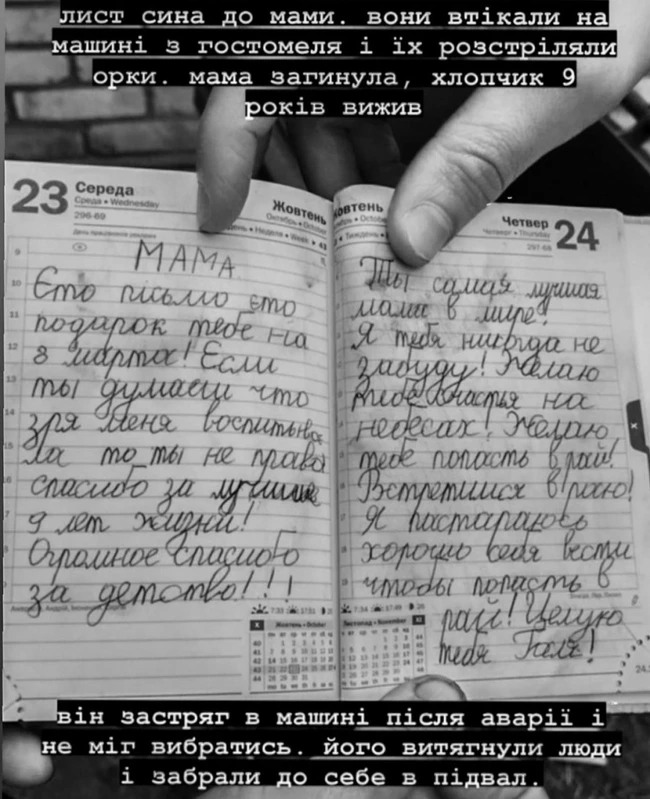 лист сина до мами. вони втікали на
машині з гостомеля і їх розстріляли
орки. мама загинула, хлопчик 9
років вижив
23 Середа
Среда • Wednesday
296-69
Жовтень
Октябрь • October
МАМА
Єто письмо єто
подарок тебе на
8 марта! Если
ты думаеш что
зря меня воспитыва
ла то ты не права
спасибо за лучшие
9 лет жизни!
Огромное спасибо
за детство!!!
7:33 17:51
Жовтень • October
Жовтень
Четвер 24
Четверг • Thursday
297-68
Ты самая лучшая
мама в мире!
Я тебя никогда не
забуду! Желаю
тебе счастья на
небесах! Желаю
тебе попасть в рай!
Встретимся в раю!
Я пастараюсь
хорошо себя вести
чтобы попасть в
рай! Целую
тебя Галя!
7:34 17:49
Листопад • November
він застряг в машині після аварії і
не міг вибратись. його витягнули люди
і забрали до себе в підвал.